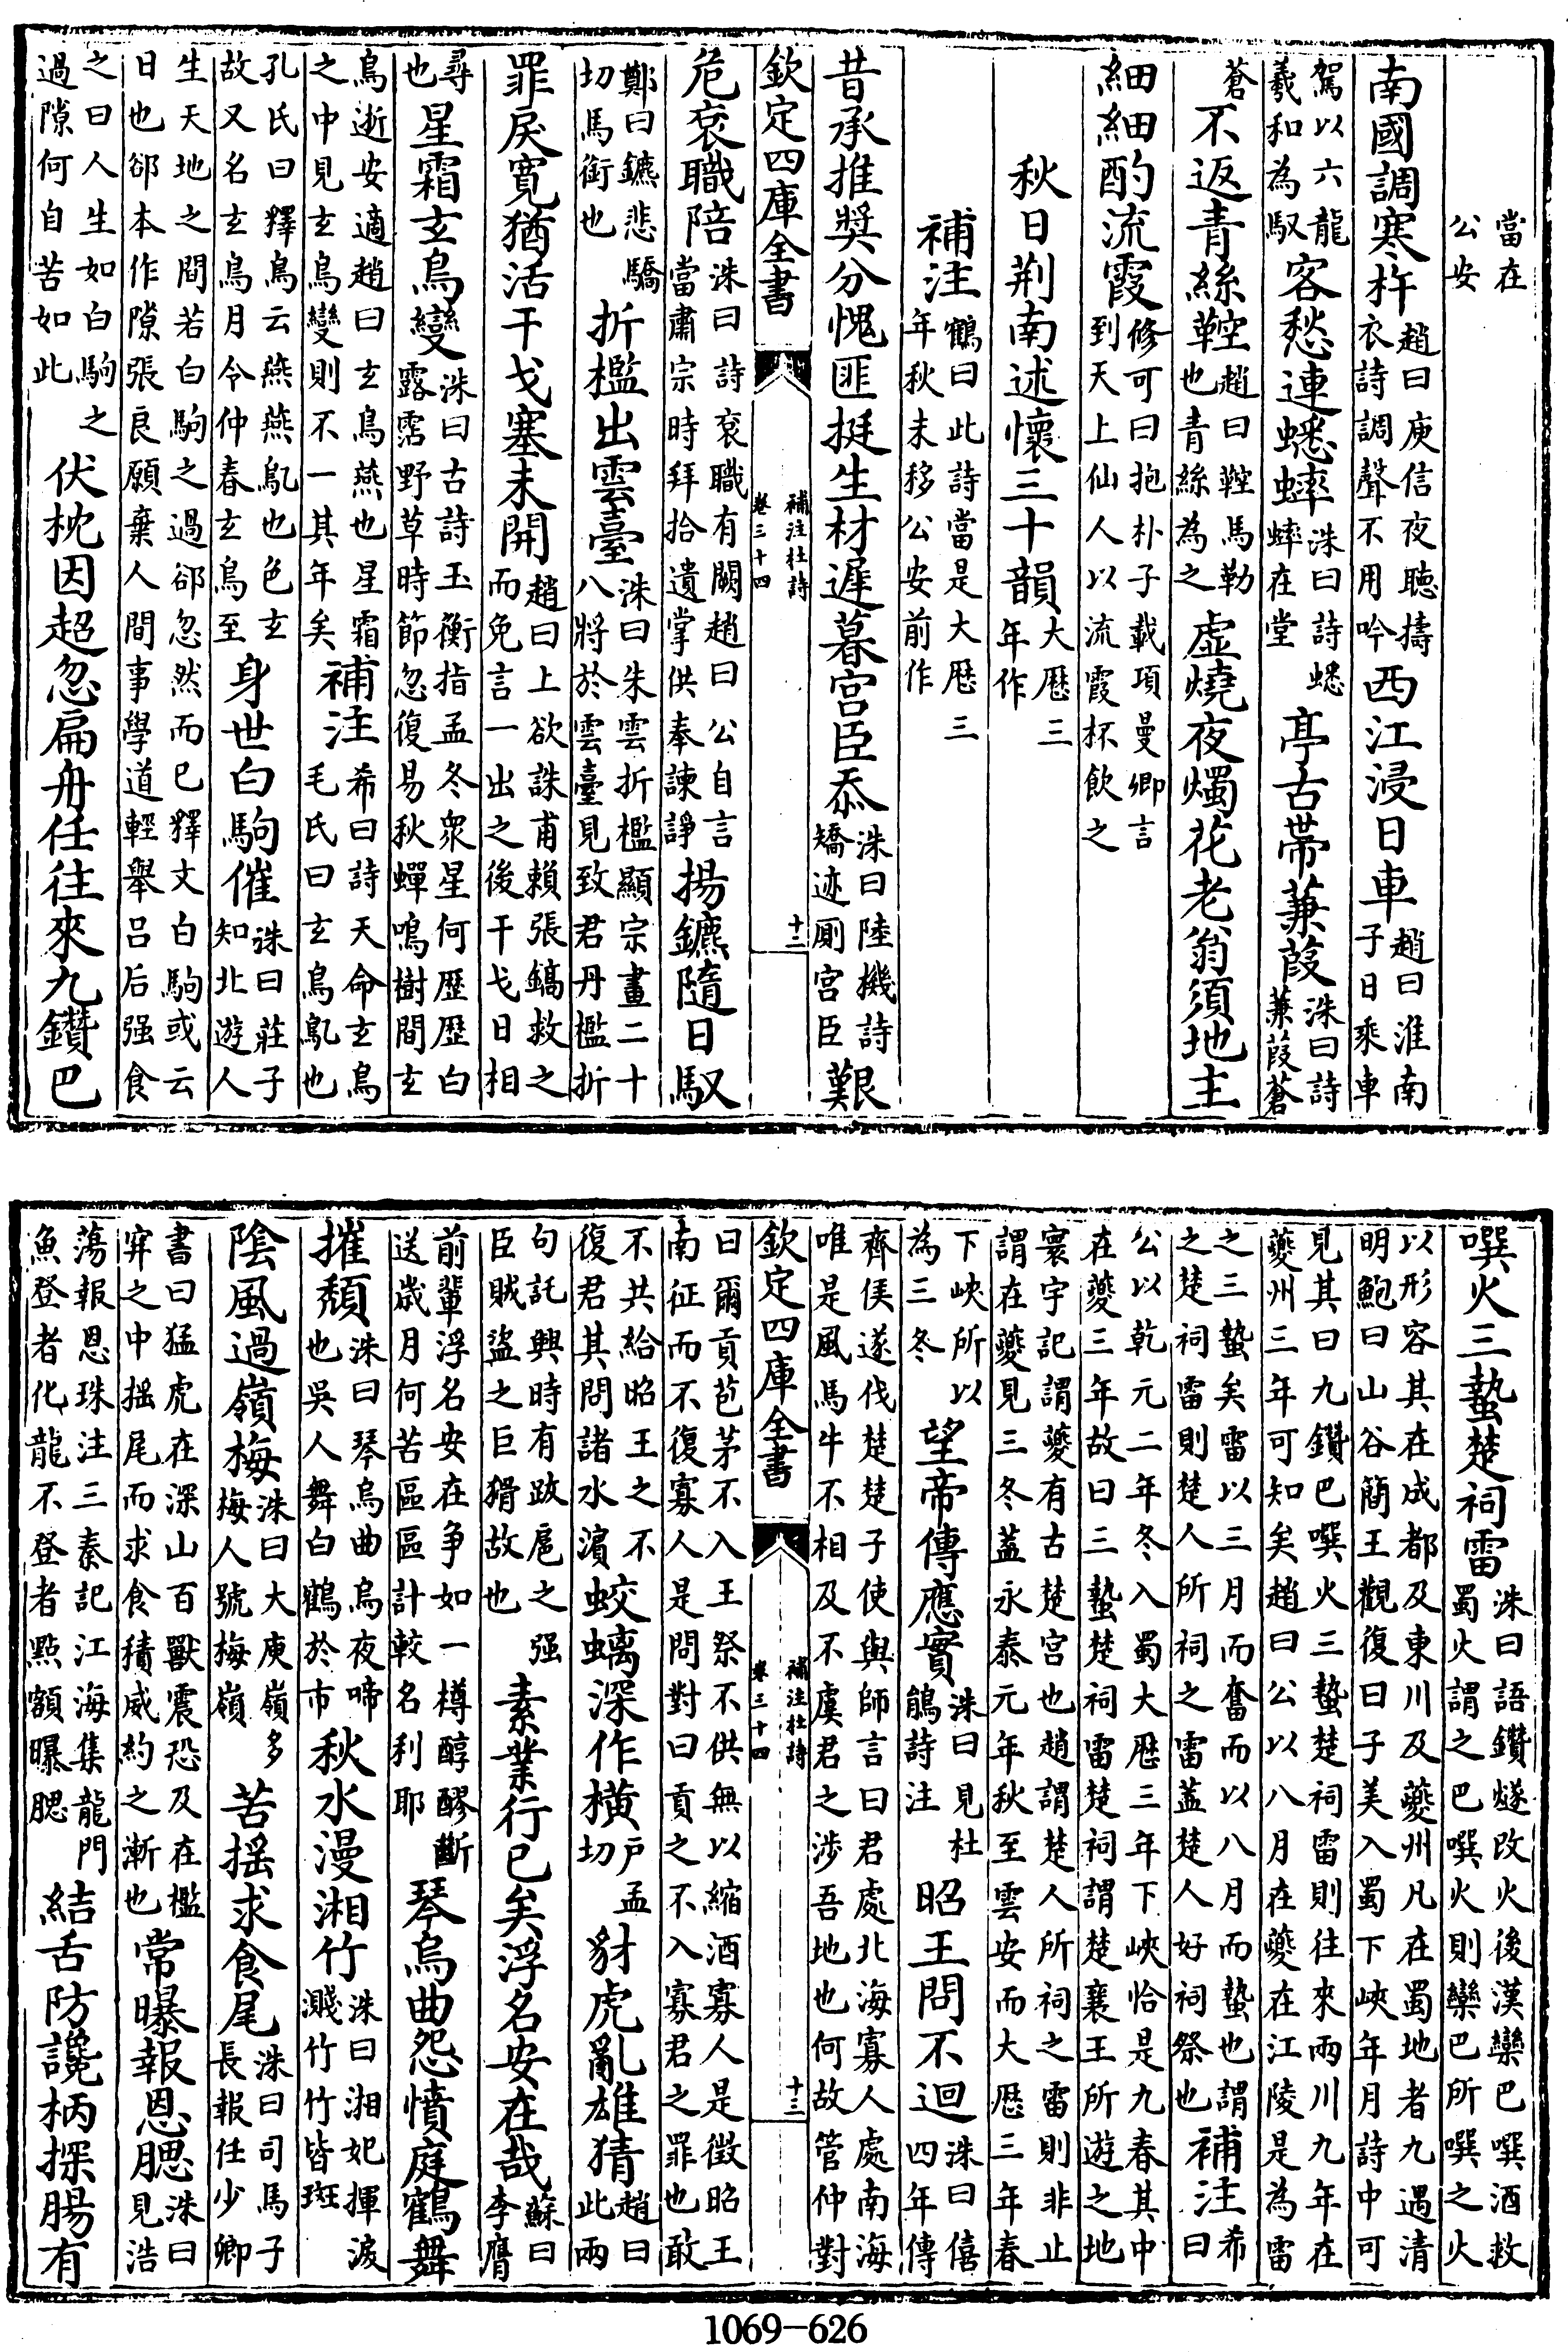 當在
公安
南國調寒杵趙曰庾信夜聽擣
衣詩調聲不用吟西江浸日車趙曰淮南
子日乘車
駕以六龍
羲和為馭客愁連蟋蟀洙曰詩蟋
蟀在堂亭古帶蒹葭洙曰詩
蒹葭蒼
蒼不返青絲鞚趙曰鞚馬勒
也青絲為之虛燒夜燭花老翁須地主
細細酌流霞修可曰抱朴子載項曼卿言
到天上仙人以流霞杯飲之
秋日荆南述懷三十韻大厯三
年作
補注鶴曰此詩當是大厯三
年秋末移公安前作
昔承推奬分愧匪挺生材遲暮宫臣忝洙曰陸機詩
矯迹厠宫臣艱
欽定四庫全書
補注杜詩
卷三十四
十三
危衮職陪洙曰詩衮職有闕趙曰公自言
當肅宗時拜拾遺掌供奉諫諍揚鑣隨日馭
鄭曰鑣悲驕
切馬銜也折檻出雲臺洙曰朱雲折檻顯宗畫二十
八將於雲臺見致君丹檻折
罪戾寛猶活干戈塞未開趙曰上欲誅甫賴張鎬救之
而免言一出之後干戈日相
尋
也星霜玄鳥變洙曰古詩玉衡指孟冬衆星何歷歷白
露霑野草時節忽復易秋蟬鳴樹間玄
鳥逝安適趙曰玄鳥燕也星霜
之中見玄鳥變則不一其年矣補注希曰詩天命玄鳥
毛氏曰玄鳥鳦也
孔氏曰釋鳥云燕燕鳦也色玄
故又名玄鳥月令仲春玄鳥至身世白駒催洙曰莊子
知北遊人
生天地之間若白駒之過郤忽然而已釋文白駒或云
日也郤本作隙張良願棄人間事學道輕舉吕后强食
之曰人生如白駒之
過隙何自苦如此伏枕因超忽扁舟任往來九鑽巴
噀火三蟄楚祠雷洙曰語鑽燧改火後漢欒巴噀酒救
蜀火謂之巴噀火則欒巴所噀之火
以形容其在成都及東川及夔州凡在蜀地者九遇清
明鮑曰山谷簡王觀復曰子美入蜀下峽年月詩中可
見其曰九鑽巴噀火三蟄楚祠雷則往來兩川九年在
夔州三年可知矣趙曰公以八月在夔在江陵是為雷
之三蟄矣雷以三月而奮而以八月而蟄也謂
之楚祠雷則楚人所祠之雷蓋楚人好祠祭也補注希
曰
公以乾元二年冬入蜀大厯三年下峽恰是九春其中
在夔三年故曰三蟄楚祠雷楚祠謂楚襄王所遊之地
寰宇記謂夔有古楚宫也趙謂楚人所祠之雷則非止
謂在夔見三冬蓋永泰元年秋至雲安而大厯三年春
下峽所以
為三冬望帝傳應實洙曰見杜
鵑詩注昭王問不迴洙曰僖
四年傳
齊侯遂伐楚楚子使與師言曰君處北海寡人處南海
唯是風馬牛不相及不虞君之涉吾地也何故管仲對
欽定四庫全書
補注杜詩
卷三十四
十三
曰爾貢苞茅不入王祭不供無以縮酒寡人是徵昭王
南征而不復寡人是問對曰貢之不入寡君之罪也敢
不共給昭王之不
復君其問諸水濵蛟螭深作横户孟
切豺虎亂雄猜趙曰
此兩
句託興時有跋扈之强
臣賊盗之巨猾故也素業行已矣浮名安在哉蘇曰
李膺
前輩浮名安在争如一樽醇醪斷
送歲月何苦區區計較名利耶琴烏曲怨憤庭鶴舞
摧頽洙曰琴烏曲烏夜啼
也吳人舞白鶴於市秋水漫湘竹洙曰湘妃揮淚
濺竹竹皆斑
陰風過嶺梅洙曰大庾嶺多
梅人號梅嶺苦摇求食尾洙曰司馬子
長報任少卿
書曰猛虎在深山百獸震恐及在檻
穽之中摇尾而求食積威約之漸也常曝報恩腮洙曰
見浩
蕩報恩珠注三秦記江海集龍門
魚登者化龍不登者點額曝腮結舌防讒柄探腸有
1069-626